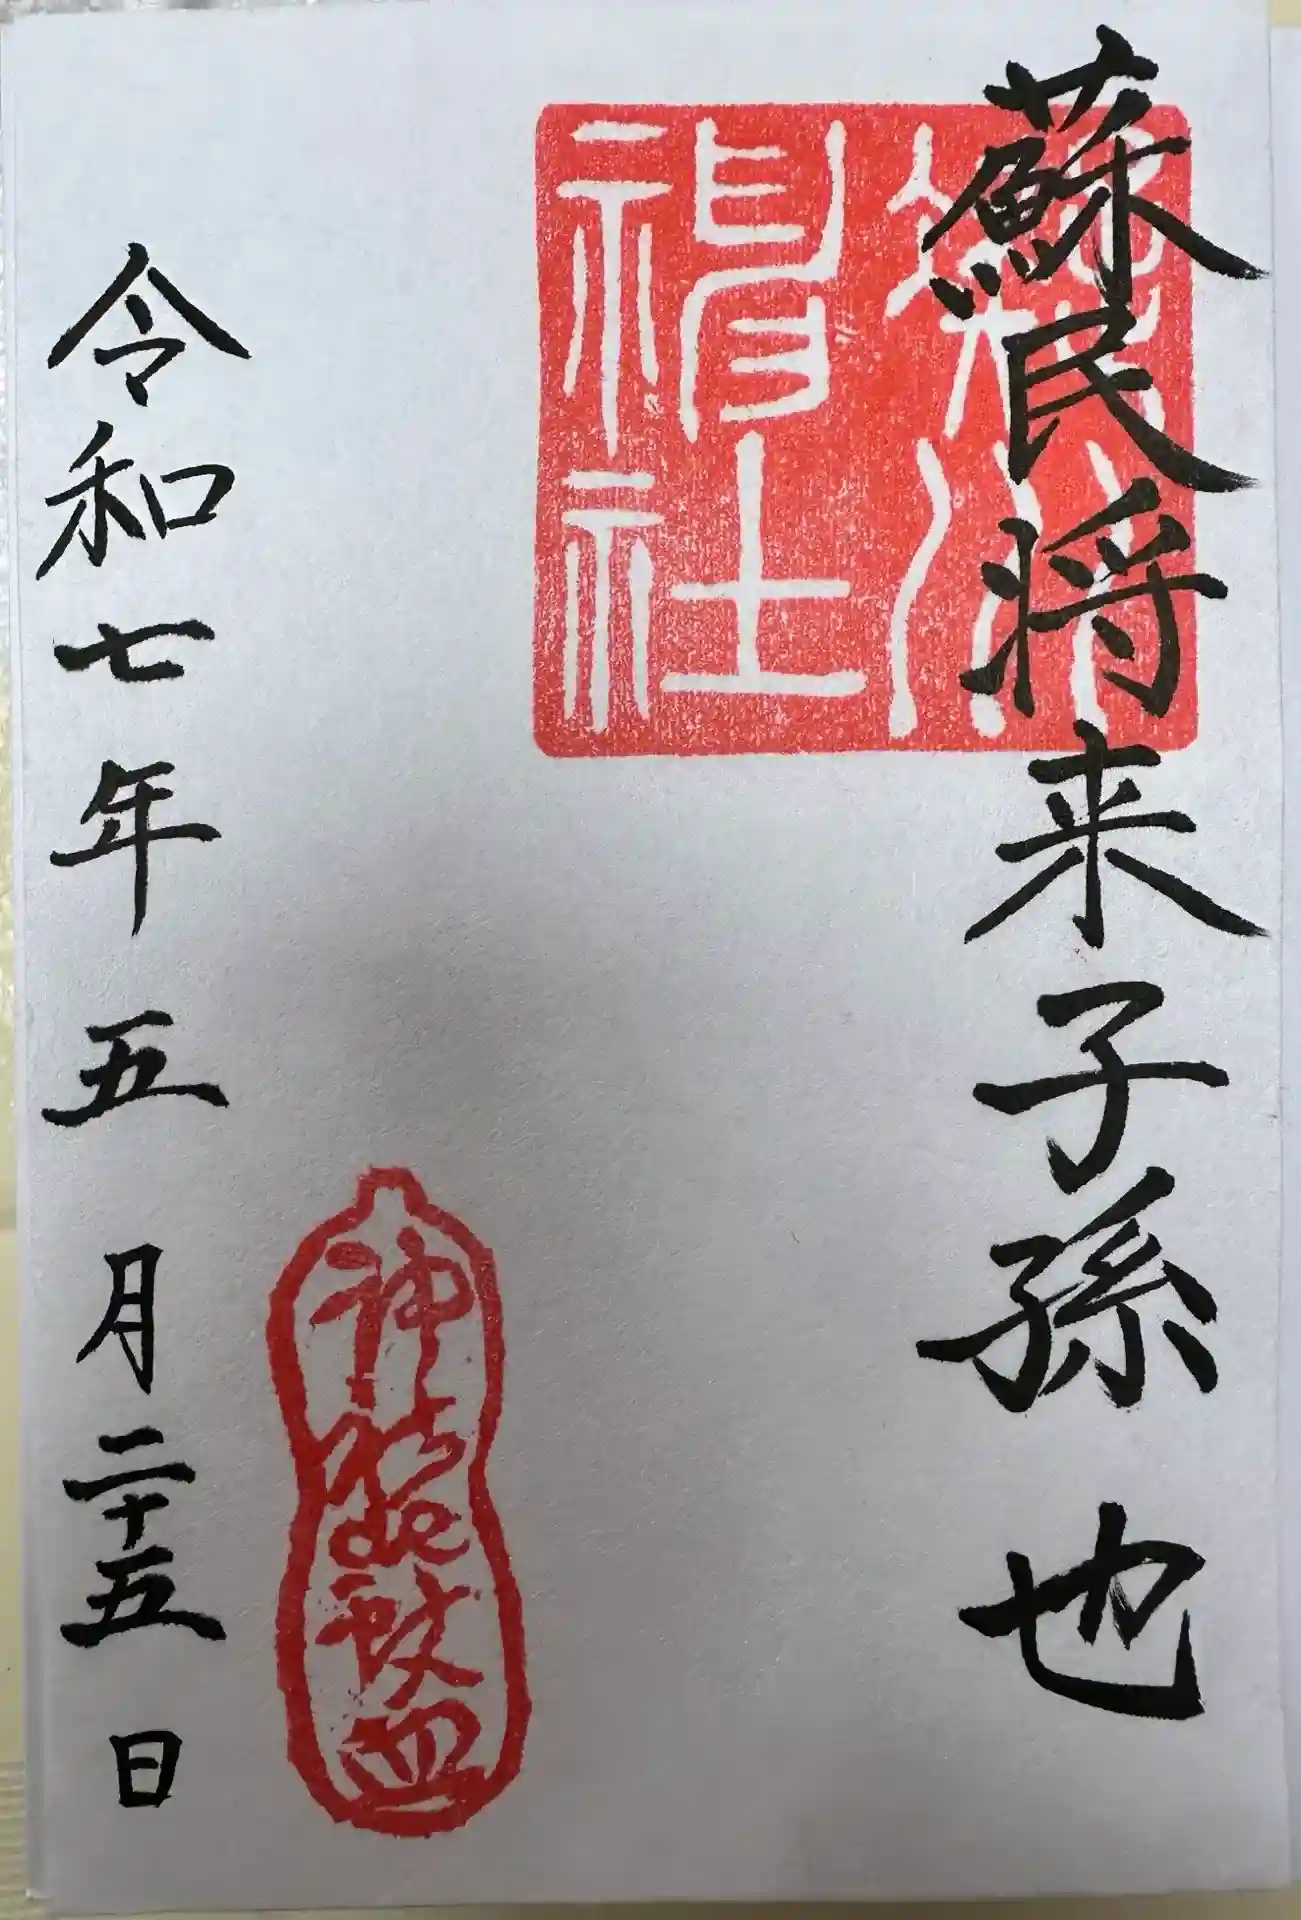 蘇民将来子孫也
神社
令和七年五月二十五日